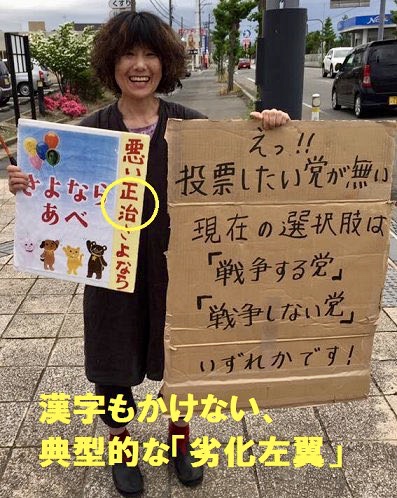 くすり
さよなら
あべ
悪い正治さよなら
えっ!!
投票したい党が無い
現在の選択肢は
「戦争する党」
「戦争しない党」
いずれかです!
漢字もかけない、
典型的な「劣化左翼」